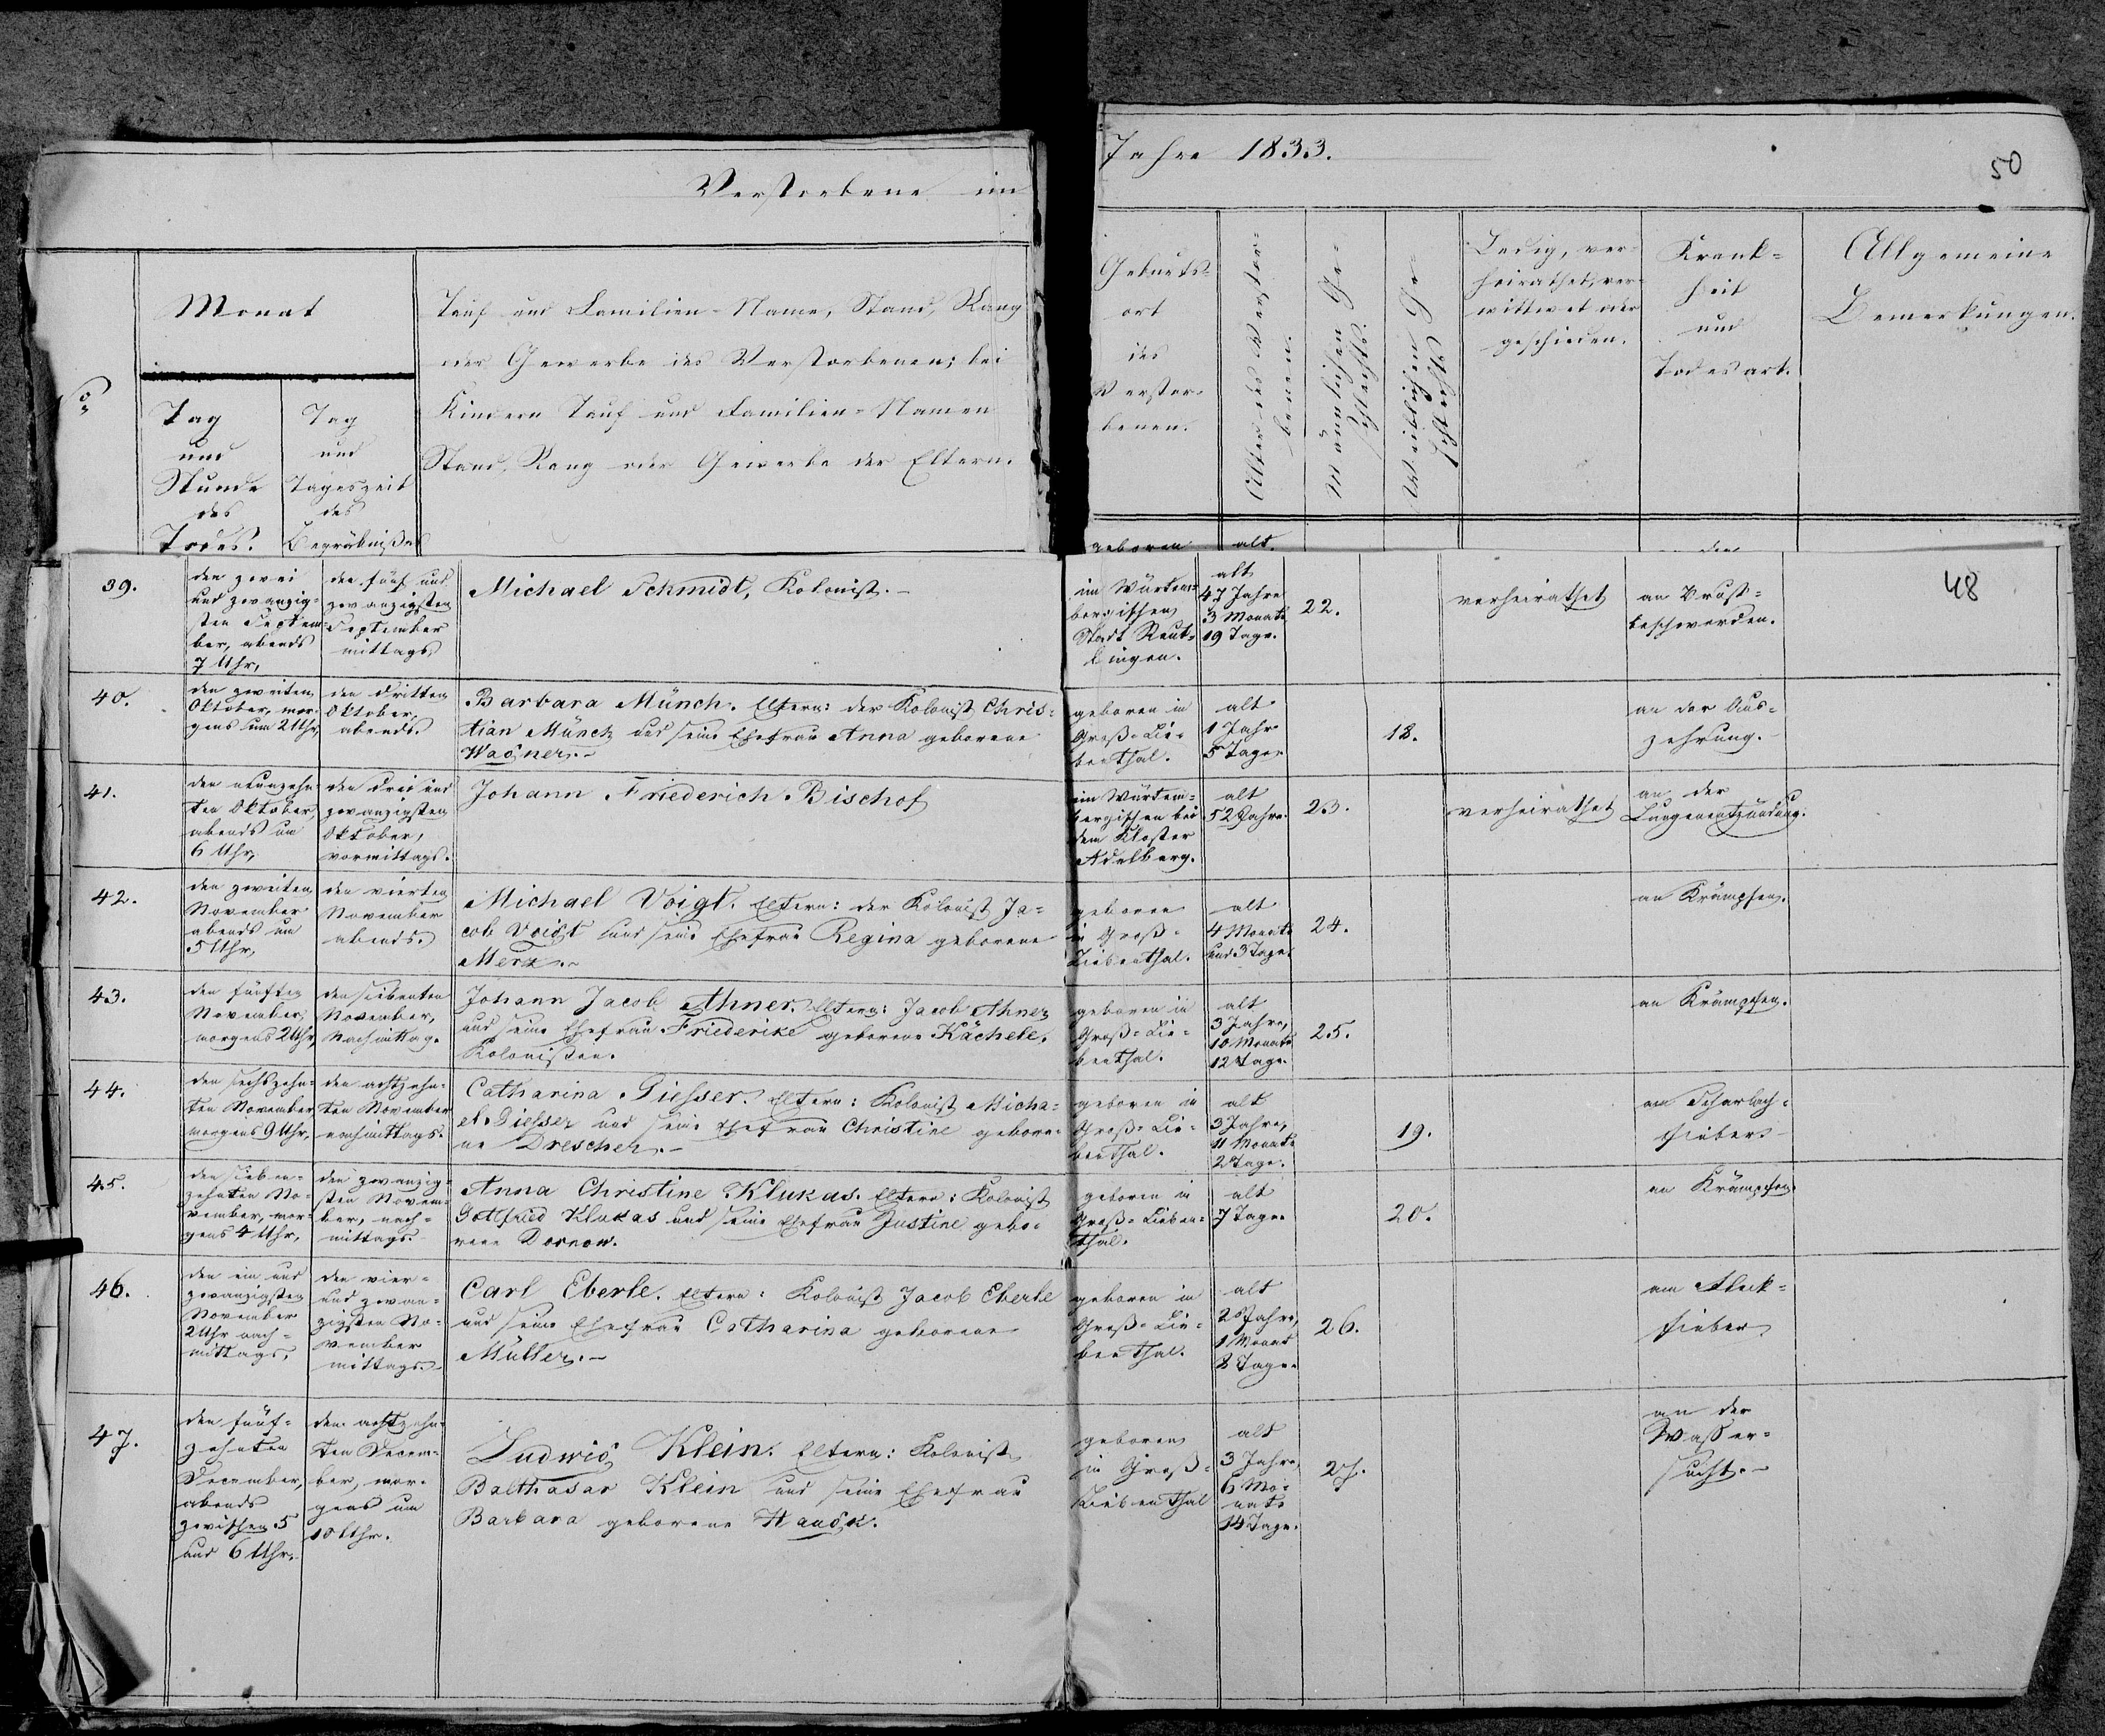 Verstorbene im
Jahre 1833.
50
No
Monat
Tag
und
Stunde
des
Todes.
Tag
und
Tageszeit
des
Begräbnißes
Tauf und Familien-Name, Stand, Rang
oder Gewerbe des Verstorbenen; bei
Kindern Tauf und Familien-Namen
Stand, Rang oder Gewerbe der Eltern.
Geburts-
ort
des
Verstor-
benen.
Alter des Verstor-
benen.
Männlichen Ge-
schlechts.
Weiblichen Ge-
schlechts
Ledig, ver-
heirathet, ver-
wittwet oder
geschieden.
Krank-
heit
und
Todesart.
Allgemeine
Bemerkungen.
geboren
alt
48
39.
den zwei
und zwanzig-
sten Septem-
ber, abends
7 Uhr,
den fünf und
zwanzigsten
September
mittags
Michael Schmidt, Kolonist.-
im Würtem-
bergischen
Stadt Reut-
lingen.
alt
47 Jahre
3 Monate
19 Tage.
22.
verheirathet
an Brust-
beschwerden.
40.
den zweiten
Oktober, mor-
gens um 2 Uhr,
den dritten
Oktober,
abends.
Barbara Münch. Eltern: der Kolonist Chris-
tian Münch und seine Ehefrau Anna geborene
Wagner.-
geboren in
Groß-Lie-
benthal.
alt
1 Jahr
5 Tage.
18.
an der Aus-
zehrung.
41.
den neunzehn-
ten Oktober,
abends um
6 Uhr,
den drei und
zwanzigsten
Oktober,
vormittags.
Johann Friederich Bischof
im Würtem-
bergischen bei
dem Kloster
Adelberg.
alt
52 Jahre.
23.
verheirathet
an der
Lungenentzündung.
42.
den zweiten
November
abends um
5 Uhr,
den vierten
November
abends.
Michael Voigt. Eltern: der Kolonist Ja-
cob Voigt und seine Ehefrau Regina geborene
Merz.-
geboren
in Groß-
Liebenthal.
alt
4 Monate
und 3 Tage.
24.
an Krämpfen.
43.
den fünften
November,
morgens 2 Uhr,
den siebenten
November,
Nachmittag.
Johann Jacob Ahner. Eltern: Jacob Ahner
und seine Ehefrau Friederike geborene Kächele.
Kolonisten.
geboren in
Groß-Lie-
benthal.
alt
3 Jahre,
10 Monate
12 Tage.
25.
an Krämpfen.
44.
den sechszehn-
ten November
morgens 9 Uhr,
den achtzehn-
ten November
nachmittags.
Catharina Diesser. Eltern: Kolonist Micha-
el Diesser und seine Ehefrau Christine gebore-
ne Drescher.-
geboren in
Groß-Lie-
benthal.
alt
3 Jahre,
11 Monate
2 Tage.
19.
am Scharlach-
fieber.
45.
den sieben-
zehnten No-
vember, mor-
gens 4 Uhr,
den zwanzig-
sten Novem-
ber, nach-
mittags.
Anna Christine Klukas. Eltern: Kolonist
Gottfried Klukas und seine Ehefrau Justine gebo-
rene Dornow.
geboren in
Groß-Lieben-
thal.
alt
7 Tage.
20.
an Krämpfen
46.
den ein und
zwanzigsten
November
2 Uhr nach-
mittags,
den vier-
und zwan-
zigsten No-
vember
mittags.-
Carl Eberle. Eltern: Kolonist Jacob Eberle
und seine Ehefrau Catharina geborene
Müller.-
geboren in
Groß-Lie-
benthal.
alt
2 Jahre,
1 Monat
8 Tage.
26.
am Fleck-
fieber
47.
den fünf-
zehnten
December,
abends
zwischen 5
und 6 Uhr.
den achtzehn-
ten Decem-
ber, mor-
gens um
10 Uhr.
Ludwig Klein. Eltern: Kolonist
Balthasar Klein und seine Ehefrau
Barbara geborene Hauck.
geboren
in Groß-
Liebenthal
alt
3 Jahre,
6 Mo-
nate
14 Tage.
27.
an der
Wasser-
sucht.-